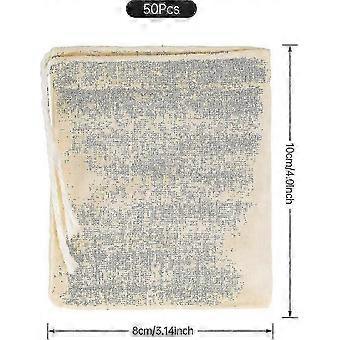 50Pcs
10cm/4.0inch
8cm/3.14inch